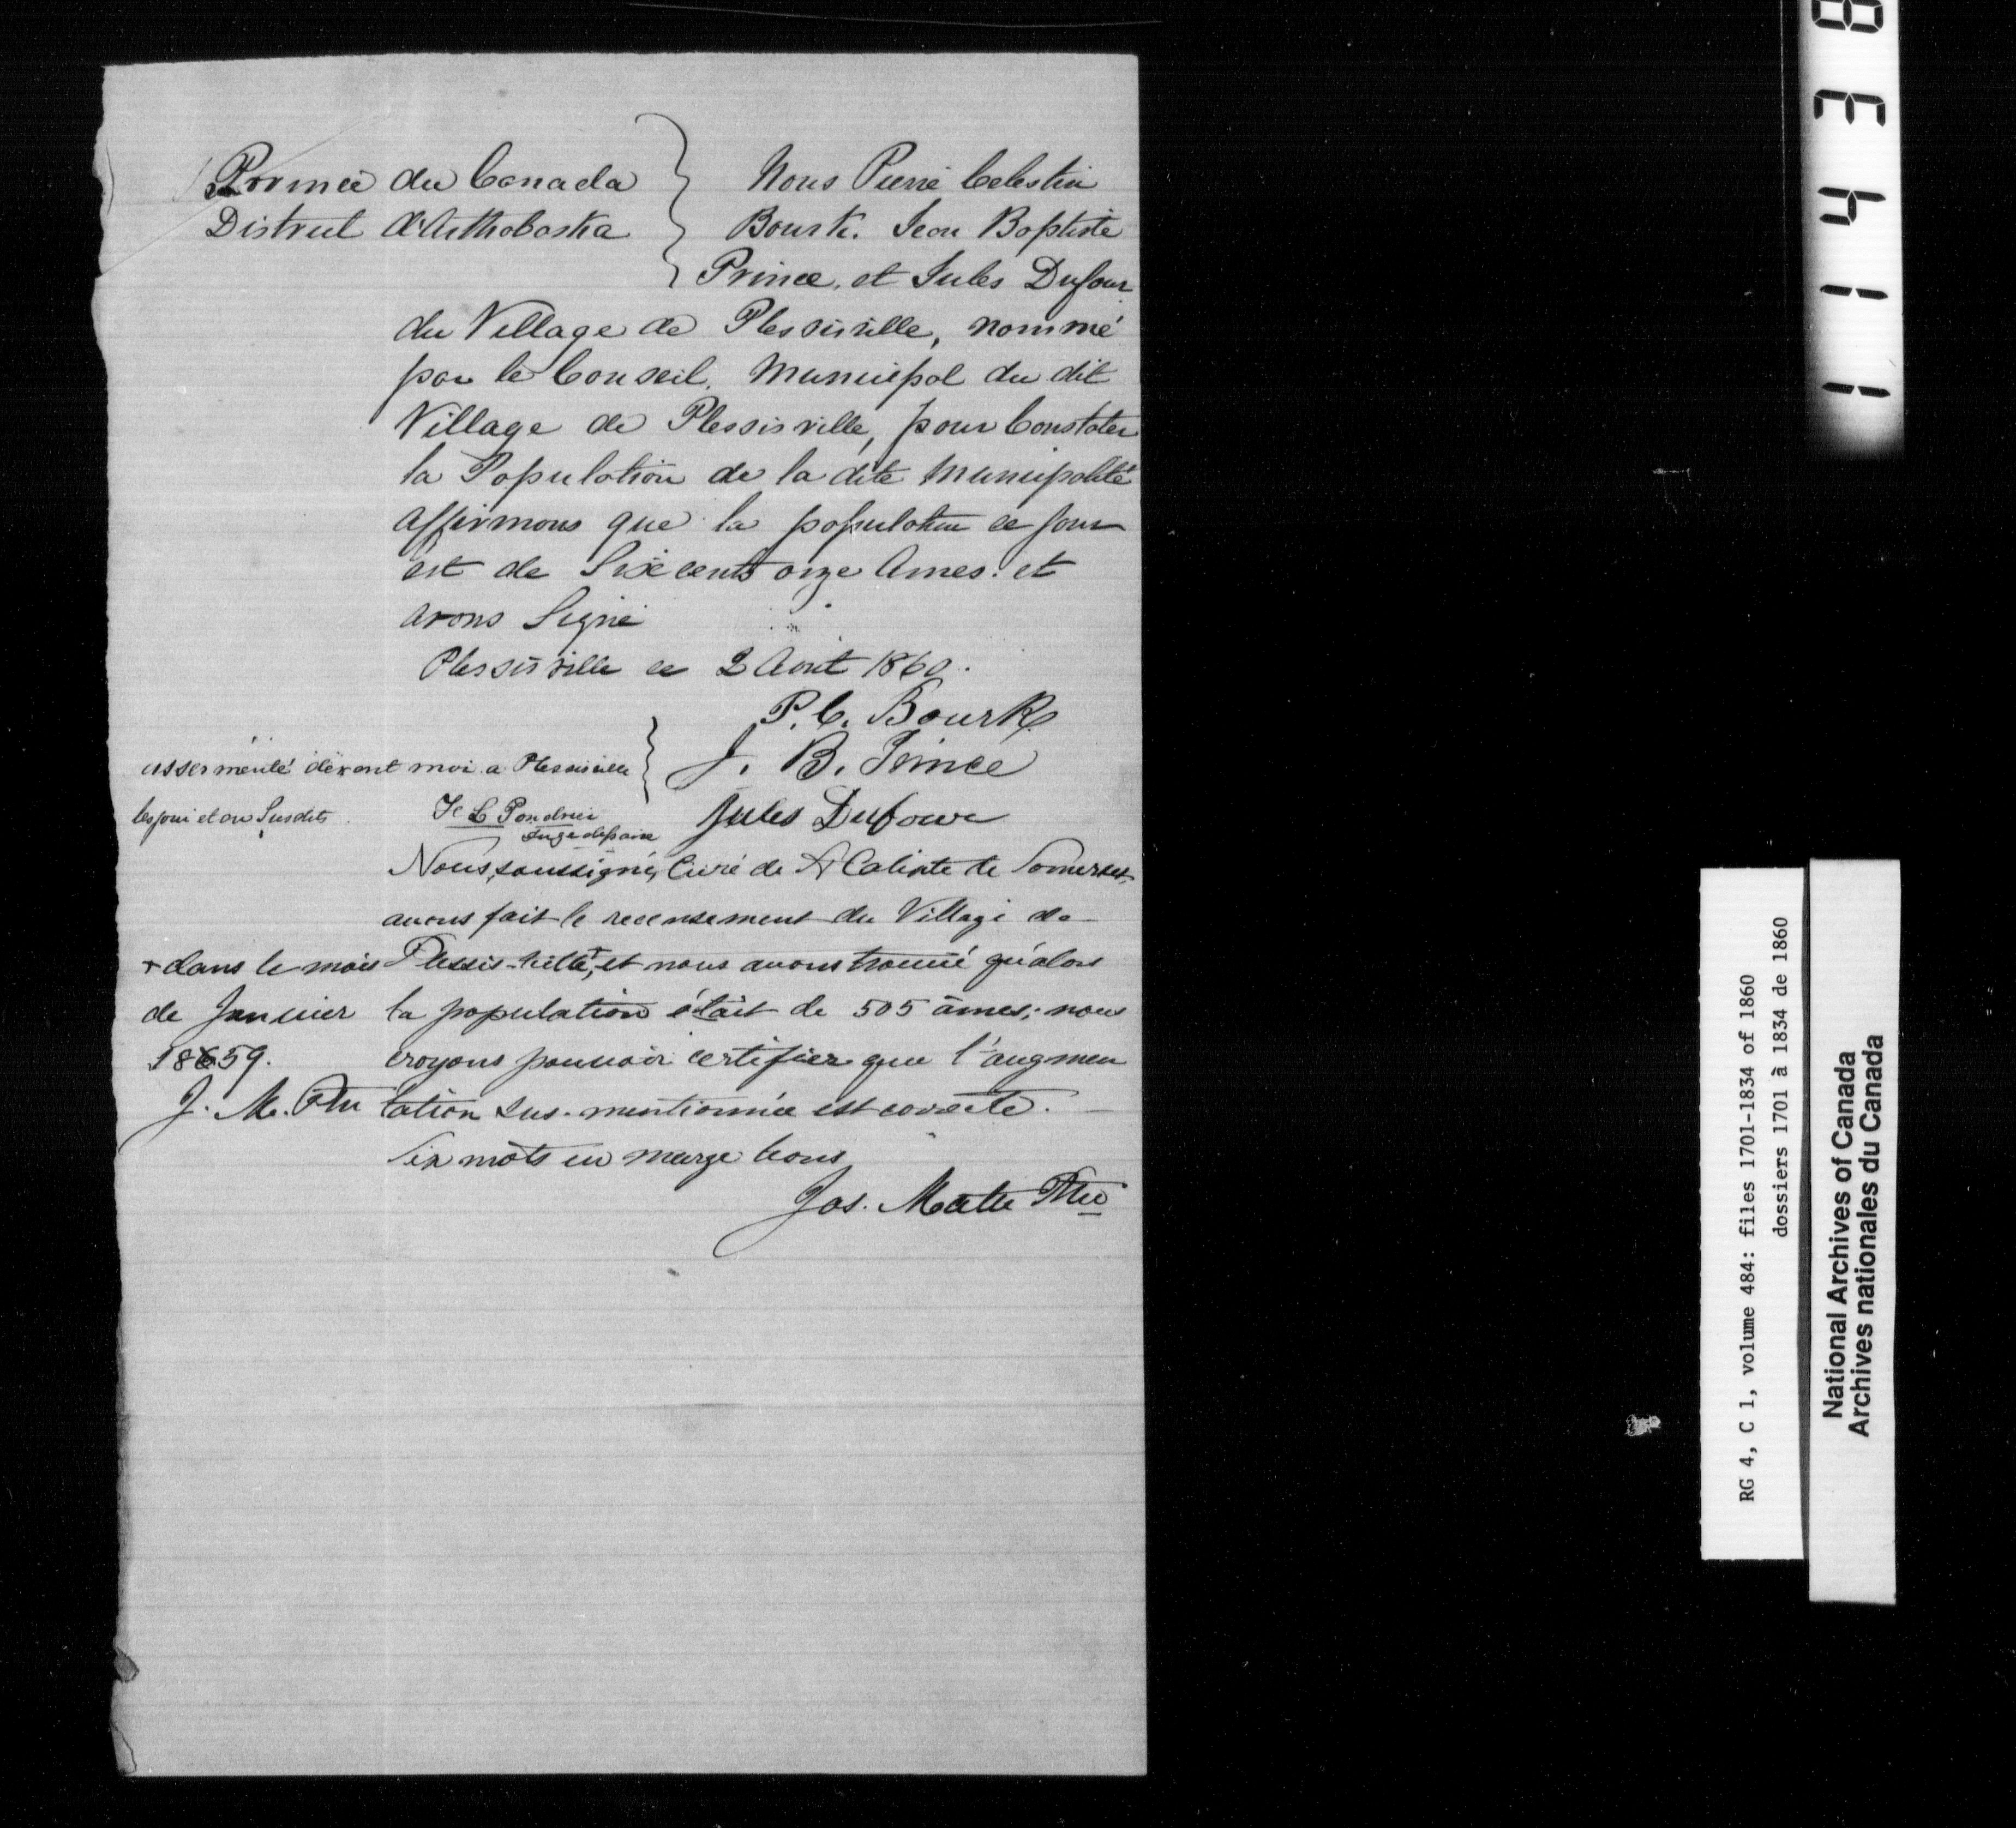 Province du Canada
District d'Arthabaska
Nous Pierre Celestin
Bourk. Jean Baptiste
Prince, et Jules Dufour
du Village de Plessisville, nommé
par le Conseil Municipal du dit
Village de Plessisville, pour Constater
la Population de la dite Municipalité
affirmons que la population ce jour
est de Six cents onze Ames. et
avons Signé
Plessisville ce 2 Aout 1860.
P. C. Bourk
J. B. Prince
assermenté devant moi a Plessisville
les jour et an Susdits
Juge de paix
Jules Dufour
Nous, soussigné, Curé de St Calixte de Somerset,
avons fait le recensement du Village de
Plessis-ville,+ et nous avons trouvé qu'alors
la population était de 505 âmes; nous
croyons pouvoir certifier que l'augmen
tation sus-mentionnée est correcte.
+ dans le mois
de Janvier
1859.
J. M. Ptre
Six mots en marge bons
Jos. Matte Ptre
11438
RG 4, C 1, volume 484: files 1701-1834 of 1860
dossiers 1701 à 1834 de 1860
National Archives of Canada
Archives nationales du Canada